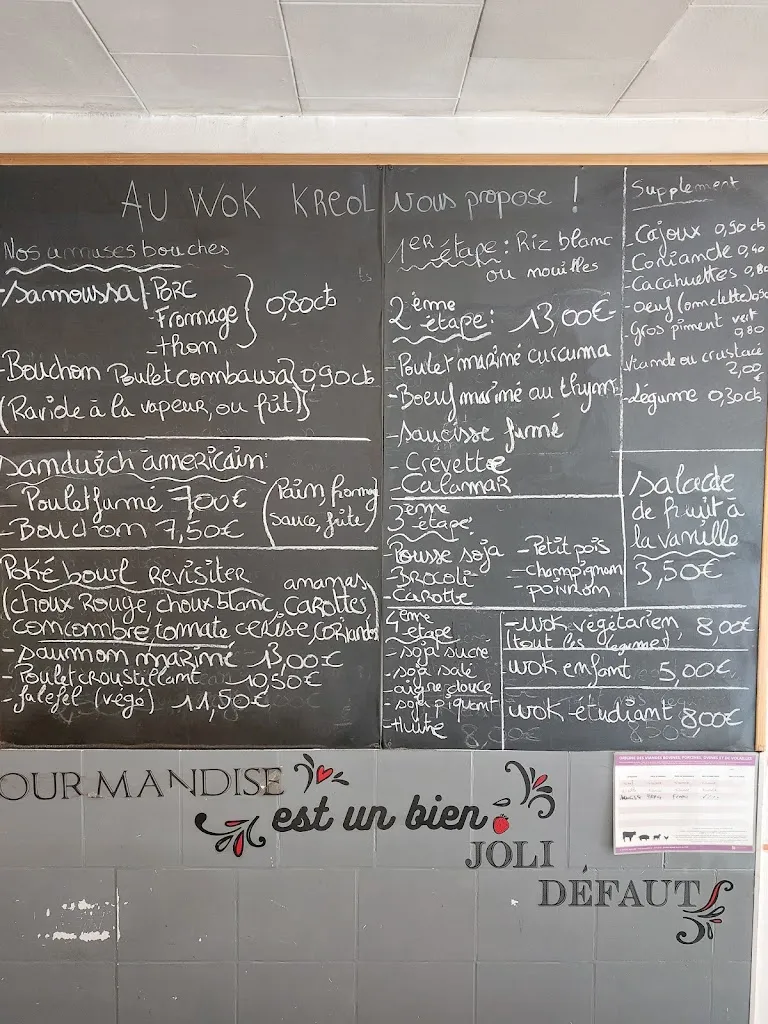 AU WOK KREOL vous propose !
Nos amuses bouches
-Samoussa / PORC
-Fromage
-thon
} 0,80cts
-Bouchon Poulet combawa } 0,90cts
(Ravide à la vapeur, ou frit)
Sandwich américain:
- Poulet fumé 7,00€
- Bouchon 7,50€
(Pain, fromage
sauce, frite)
Poké bowl REVISITER ananas,
(choux Rouge, choux blanc, carottes
concombre, tomate cerise, coriandre
- saumon mariné 13,00€
- Poulet croustillant 10,50€
- falefel (végé) 11,50€
1ER étape: Riz blanc
ou nouilles
2ème
étape: 13,00€
- Poulet mariné curcuma
- Boeuf mariné au thym
- saucisse fumé
- Crevette
- Calamar
3ème
étape:
Pousse soja
- Brocoli
- Carotte
- Petit pois
- champignon
- poivron
4ème
étape
- soja sucre
- soja salé
- aigre douce
- soja piquant
- Huitre
- wok végétarien 8,00€
(tout les légumes)
wok enfant 5,00€
wok étudiant 8,00€
Supplement
- Cajoux 0,50cts
- Coriande 0,40
- Cacahuettes 0,80
- oeuf (omelette) 0,50
- Gros piment vert
0,80
viande ou crustacé
2,00
€
- Légume 0,30cts
Salade
de fruit à
la vanille
3,50€
OURMANDISE
est un bien
JOLI
DÉFAUT
ORIGINE DES VIANDES BOVINES, PORCINES, OVINES ET DE VOLAILLES